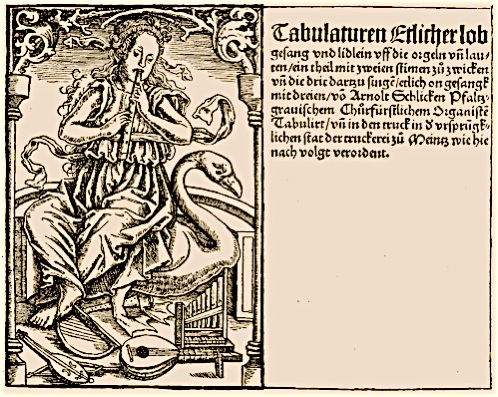 Tabulaturen Etlicher lob
gesang vnd lidlein vff die orgeln vñ lau-
ten/ein theil mit zweien stimen zů zwicken
vñ die drit darzu singē/etlich on gesangk
mit dreien/vō Arnolt Schlicken Pfaltz-
grauischem Chürfürstlichem Organistē
Tabulirt/vñ in den truck in d vrsprügk-
lichen stat der truckerei zů Meintz wie hie
nach volgt verordent.